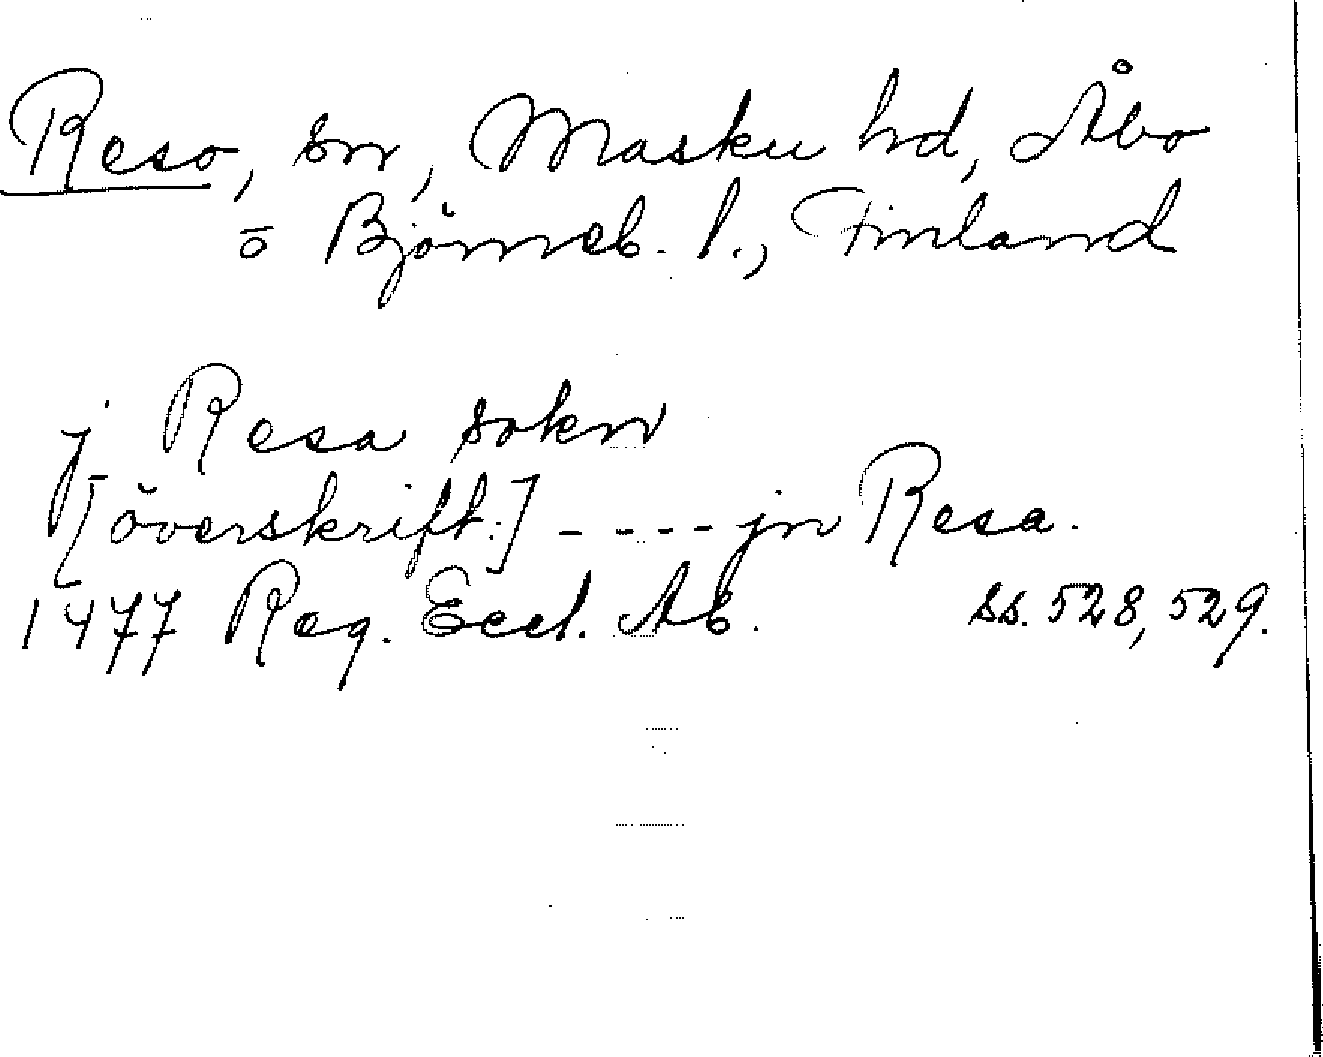 Reso, sn, Masku hd, Åbo
o Björneb. l., Finland
j Resa sokn
[överskift.] - - - - jn Resa.
1477 Reg. Eccl. Ab. ss. 528, 529.